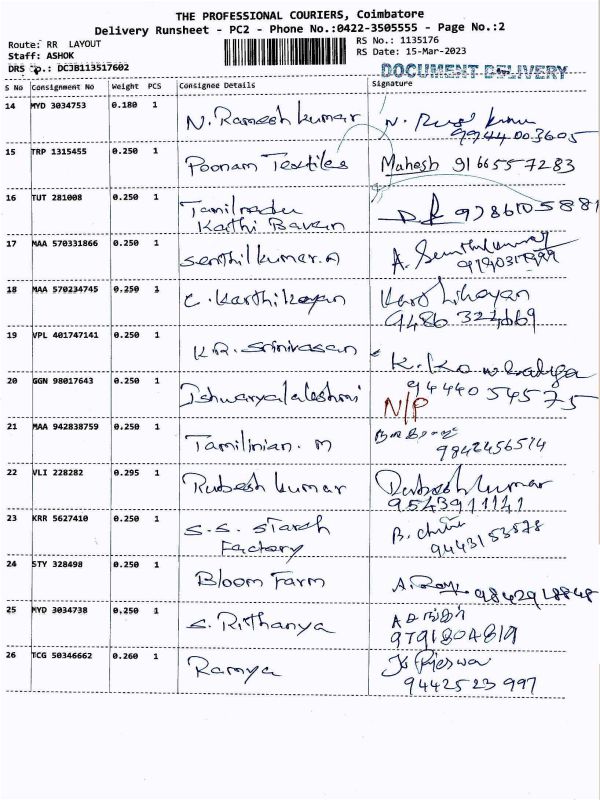 THE PROFESSIONAL COURIERS, Coimbatore
Delivery Runsheet - PC2 - Phone No.:0422-3505555 - Page No.:2
Route: RR LAYOUT
RS No.: 1135176
Staff: ASHOK
RS Date: 15-Mar-2023
DRS No.: DCJB113517602
DOCUMENT DELIVERY
S No Consignment No Weight PCS Consignee Details Signature
14 MYD 3034753 0.180 1 N. Ramesh kumar N.
9944003605
15 TRP 1315455 0.250 1 Poonam Textiles Mahesh 9166557283
16 TUT 281008 0.250 1 Tamilnadu
Kathi Bavan
17 MAA 570331866 0.250 1 Senthil kumar.A A. Senthilkumar
18 MAA 570234745 0.250 1 C. Karthikeyan Karthikeyan
9486
19 VPL 401747141 0.250 1 K.R. Srinivasan
9444054575
20 GGN 98017643 0.250 1 Ishwaryalakshmi N/P
21 MAA 942838759 0.250 1 Tamilinian. M
9842456514
22 VLI 228282 0.295 1 Rubesh kumar
9543911141
23 KRR 5627410 0.250 1 S.S. Starch B.
Factory 9443153578
24 STY 328498 0.250 1 Bloom Farm A.
25 MYD 3034738 0.250 1 S. Rithanya
9791804819
26 TCG 50346662 0.260 1 Ramya
9442523997